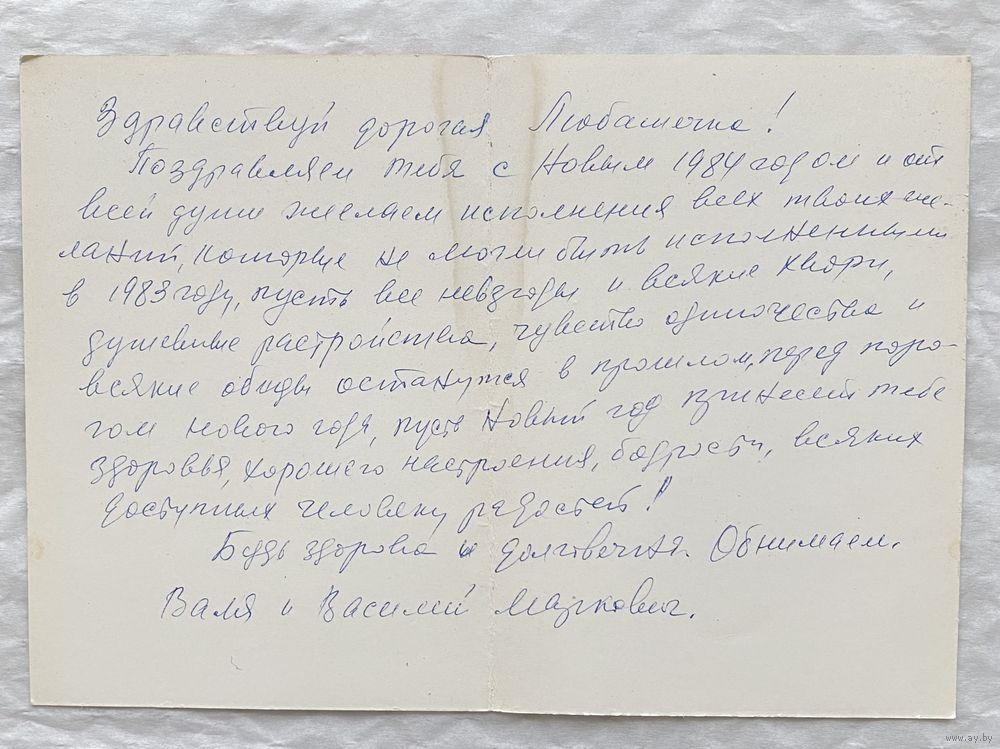 Здравствуй дорогая Любашечка!
Поздравляем тебя с Новым 1984 годом и от
всей души желаем исполнения всех твоих же-
ланий, которые не могли быть исполненными
в 1983 году, пусть все невзгоды и всякие хвори,
душевные растройства, чувство одиночества и
всякие обиды останутся в прошлом, перед поро-
гом нового года, пусть Новый год принесет тебе
здоровья, хорошего настроения, бодрости, всяких
доступных человеку радостей!
Будь здорова и долговечна. Обнимаем.
Валя и Василий Маркович.
www.ay.by